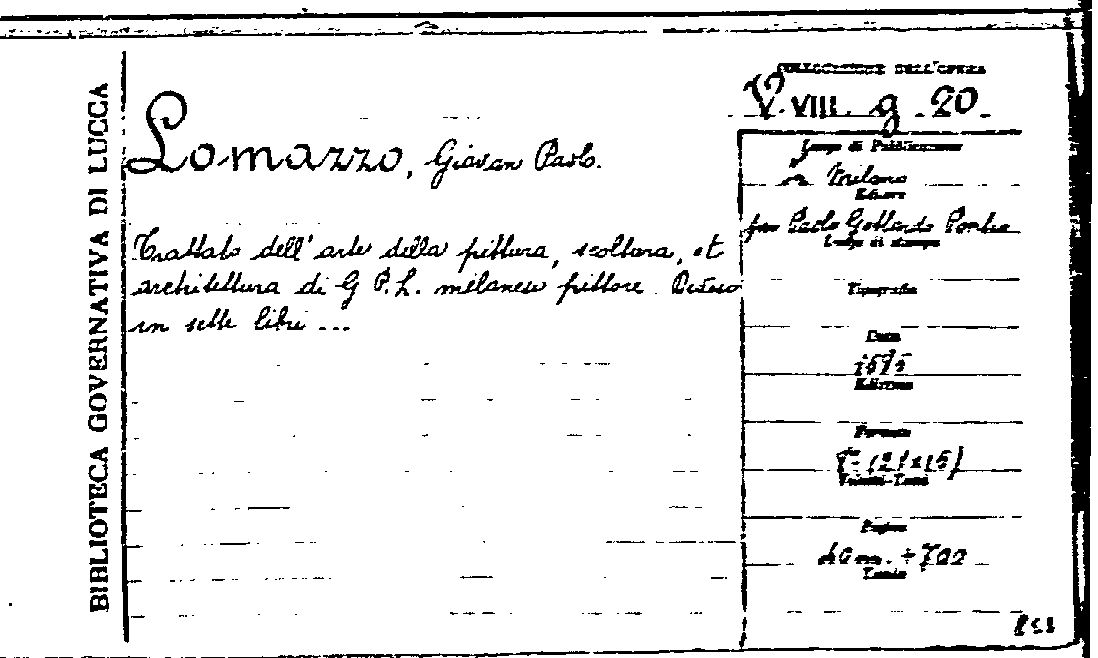 BIBLIOTECA GOVERNATIVA DI LUCCA
COLLOCAZIONE DELL'OPERA
V. VIII. g. 20
Lomazzo, Giovan Paolo.
Luogo di Pubblicazione
Milano
Editore
per Paolo Gottardo Pontio
Luogo di stampa
Trattato dell'arte della pittura, scoltura, et
architettura di G P. L. milanese pittore Diviso
in sette libri ...
Tipografia
Data
Edizione
Formato
(21x15)
Volumi-Tomi
Pagine
+ 700
Tavole